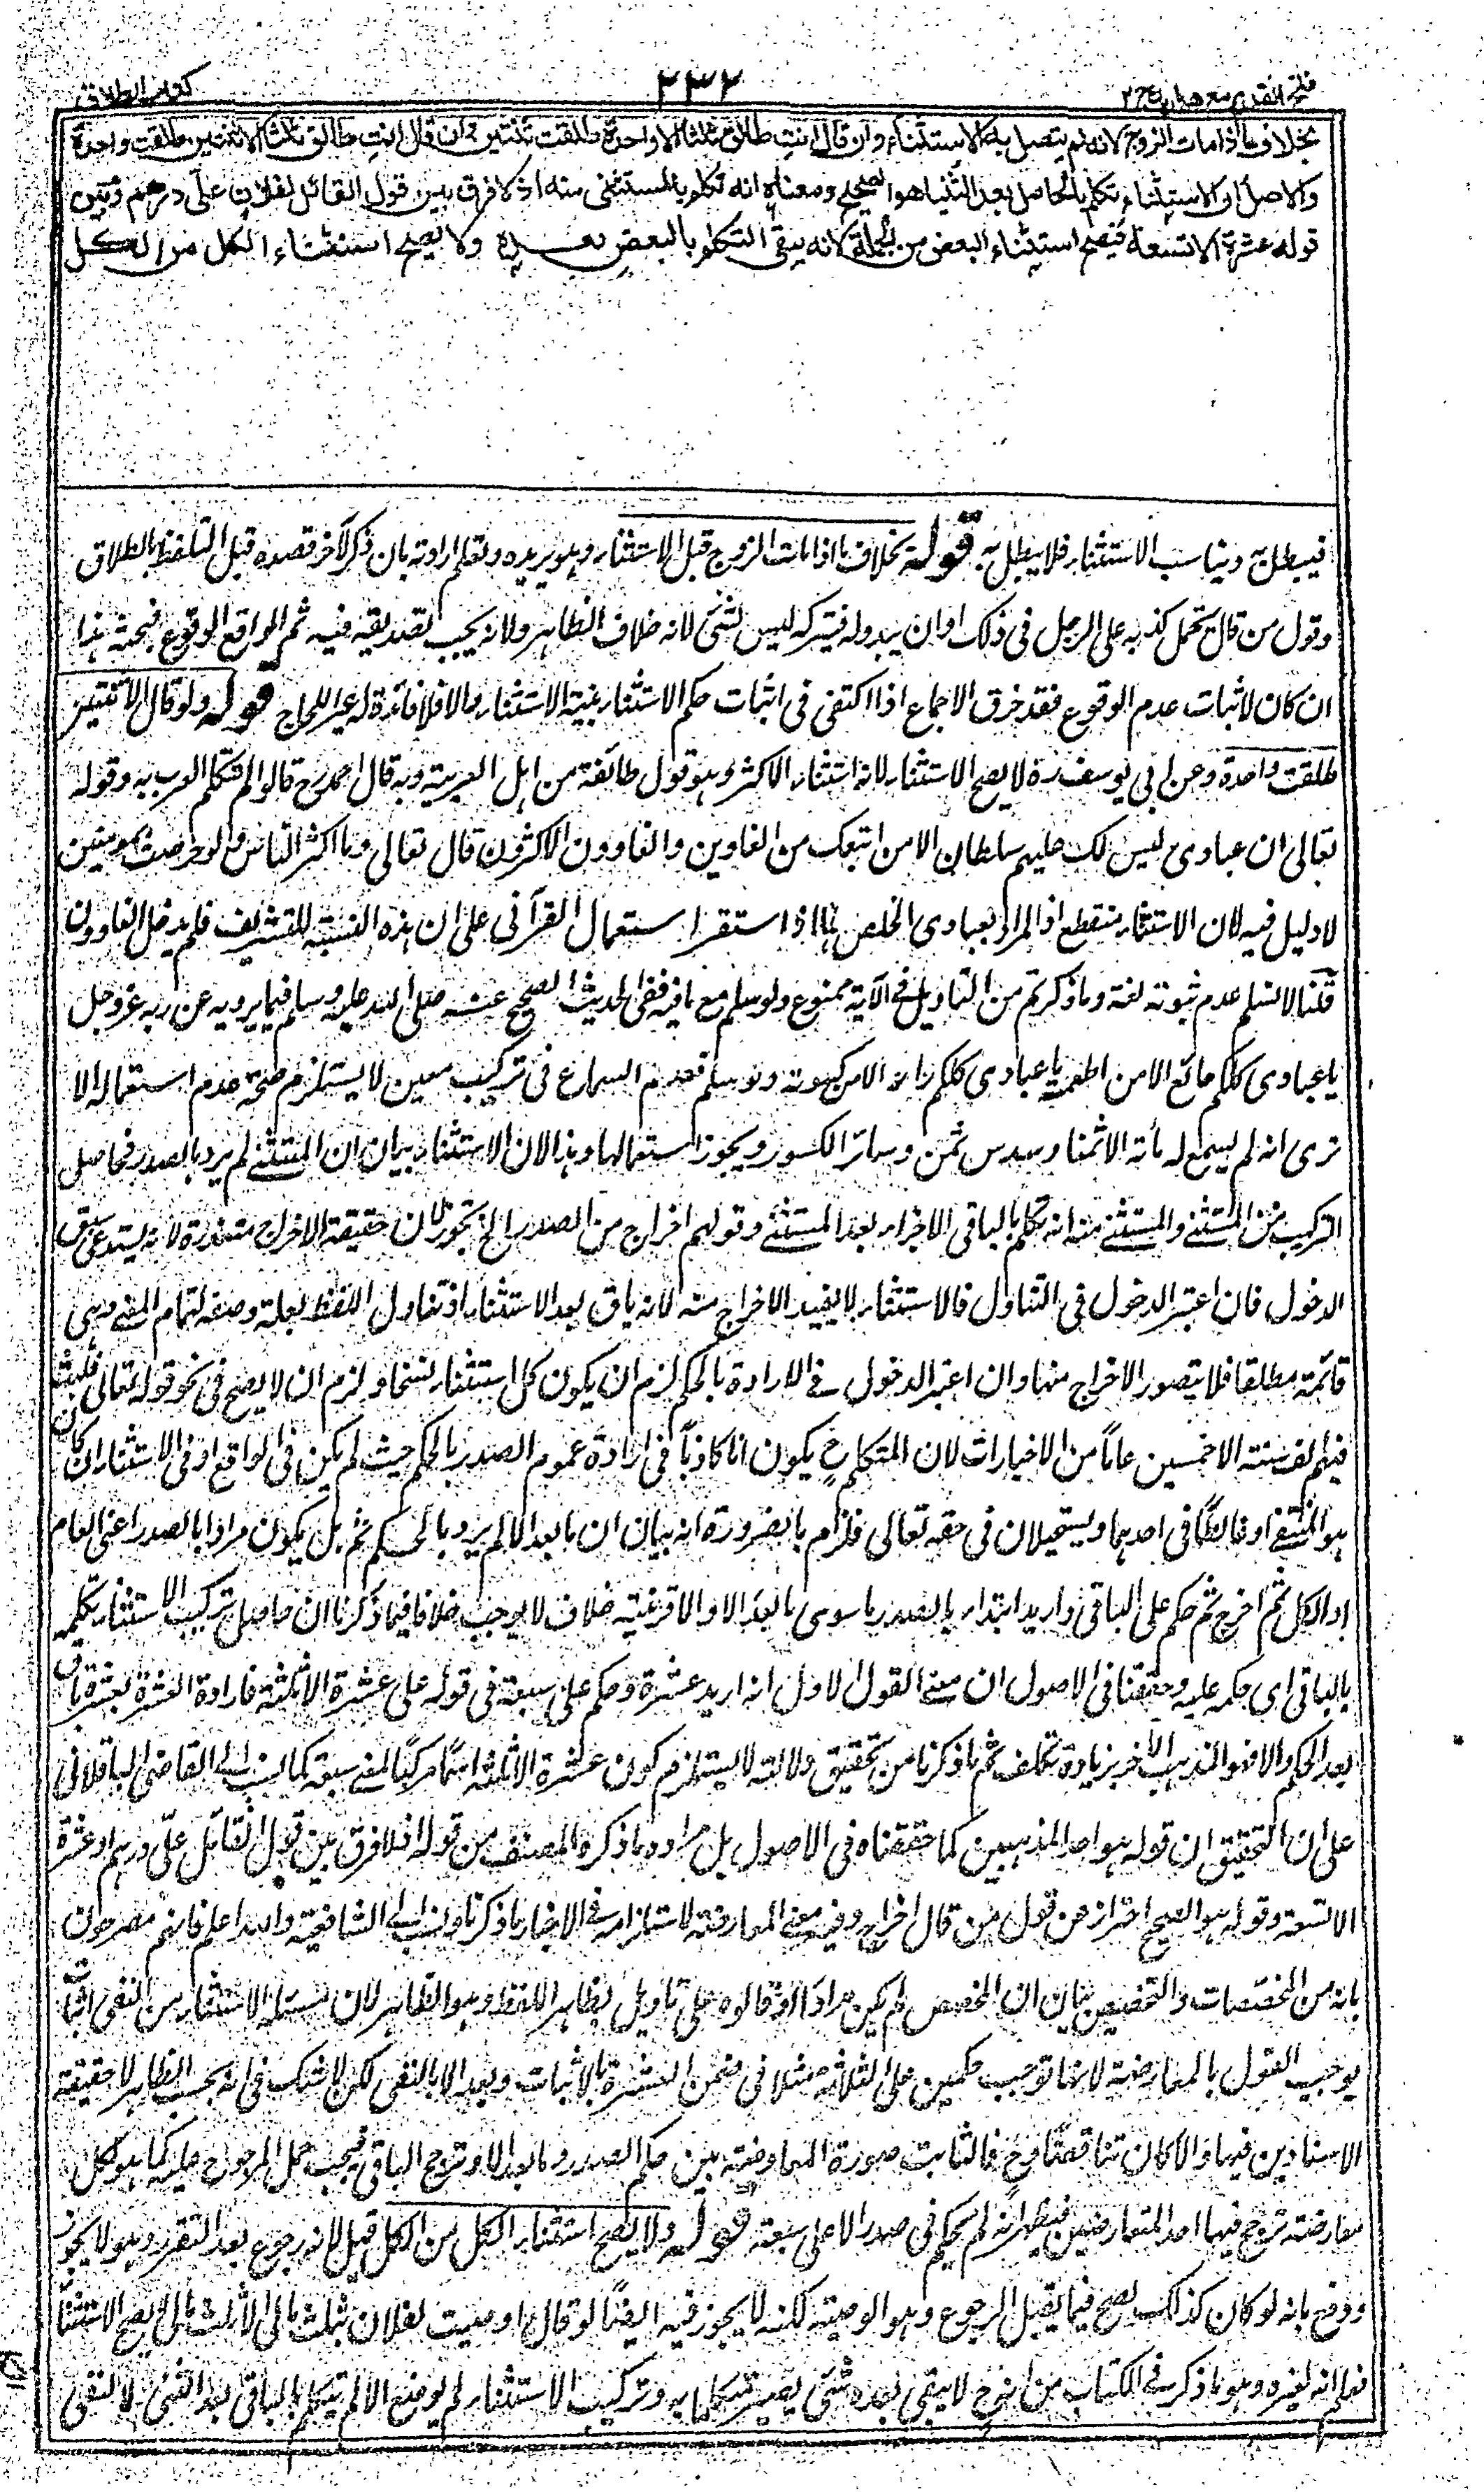 فتح القدير مع هداية ج ٢
٢٣٢
كتاب الطلاق
بخلاف ما اذا مات الزوج لانه لم يتصل به الاستثناء وان قال انت طالق ثلثا الا واحدة طلقت ثنتين وان قال انت طالق ثلثا الا ثنتين طلقت واحدة
والاصل ان الاستثناء تكلم بالحاصل بعد الثنيا هو الصحيح ومعناه انه تكلم بالمستثنى منه اذ لا فرق بين قول القائل لفلان على درهم وبين
قوله عشرة الا تسعة فيصح استثناء البعض من الجملة لانه يبقى التكلم بالبعض بعده ولا يصح استثناء الكل من الكل
فيبطل به ويناسب الاستثناء فلا يبطل به قوله بخلاف ما اذا مات الزوج قبل الاستثناء وهو يريده وتعلم ارادته بان ذكر لآخر قصده قبل التلفظ بالطلاق
وقول من قال يحتمل كذبه على الرجل فى ذلك او ان يبدو له فيتركه ليس بشئ لانه خلاف الظاهر ولانه يجب تصديقه فيه ثم الواقع الوقوع فبحثه هذا
ان كان لاثبات عدم الوقوع فقد خرق الاجماع اذا اكتفى فى اثبات حكم الاستثناء بنية الاستثناء والا فلا فائدة له غير اللجاج قوله ولو قال الا ثنتين
طلقت واحدة وعن ابي يوسف رح لا يصح الاستثناء لانه استثناء الاكثر وهو قول طائفة من اهل العربية وبه قال احمد رح قالوا لم تتكلم العرب به وقوله
تعالى ان عبادى ليس لك عليهم سلطان الا من اتبعك من الغاوين والغاوون الاكثرون قال تعالى وما اكثر الناس ولو حرصت بمومنين
لا دليل فيه لان الاستثناء منقطع اذ المراد بعبادى الخلص اذا استقراء استعمال القرآنى على ان هذه النسبة للتشريف فلم يدخل الغاوون
قلنا لا نسلم عدم ثبوته لغة وما ذكرتم من التاويل فى الآية ممنوع ولو سلم مع ما فيه ففى الحديث الصحيح عنه صلى الله عليه وسلم فيما يرويه عن ربه عز وجل
يا عبادى كلكم جائع الا من اطعمته يا عبادى كلكم عار الا من كسوته ولو سلم فعدم السماع فى تركيب معين لا يستلزم صحة عدم استعماله الا
ترى انه لم يسمع له مأتة الا ثمنا وسدس ثمن وسائر الكسور ويجوز استعمالها وهذا لان الاستثناء بيان ان المستثنى لم يرد بالصدر فحاصل
التركيب من المستثنى والمستثنى منه انه تكلم بالباقى الاجزاء بعد المستثنى وقولهم اخراج من الصدر الخ تجوز لان حقيقة الاخراج متعذرة لانه يستدعى سبق
الدخول فان اعتبر الدخول فى التناول فالاستثناء لا يفيد الاخراج منه لانه باق بعد الاستثناء اذ تناول اللفظ بعلة وضعه لتمام المعنى وهى
قائمة مطلقا فلا يتصور الاخراج منها وان اعتبر الدخول فى الارادة بالحكم لزم ان يكون كل استثناء نسخا ولزم ان لا يصح فى نحو قوله تعالى فلبث
فيهم الف سنة الا خمسين عاماً من الاخبارات لان المتكلم ح يكون اما كاذباً فى ارادة عموم الصدر بالحكم حيث لم يكن فى الواقع او فى الاستثناء ان كان
هو المنتفى او غالطاً فى احدهما ويستحيلان فى حقه تعالى فلزم بالضرورة انه بيان ان ما بعد الا لم يرد بالحكم ثم هل يكون مرادا بالصدر اعنى العام
او الكل ثم اخرج ثم حكم على الباقى او اريد ابتداء بالصدر ما سوى ما بعد الا والا قرينته خلاف لا يوجب خلافا فيما ذكرنا ان حاصل تركيب الاستثناء تكلم
بالباقى اى حكم عليه وحققنا فى الاصول ان معنى القول الاول انه اريد عشرة وحكم على سبعة فى قوله على عشرة الا ثلثة فارادة العشرة بعشرة باق
بعد الحكم والا فهو المذهب الآخر بزيادة تكلف ثم ما ذكرنا من تحقيق دلالته لا يستلزم كون عشرة الا ثلثة اسما مركبًا لمعنى سبعة كما نسب الى القاضى الباقلانى
على ان التحقيق ان قوله هو احد المذهبين كما حققناه فى الاصول بل مراده ما ذكره المصنف من قوله اذ لا فرق بين قول القائل علىّ درهم او عشرة
الا تسعة وقوله هو الصحيح احتراز عن قول من قال اخراج وفيه معنى المعارضة لاستلزامه فى الاخبار ما ذكرنا ونسب الى الشافعية والله اعلم فانهم مصرحون
بانه من المخصصات والتخصيص بيان ان المخصص لم يكن مرادًا او قالوه على تاويل بظاهر اللفظ وهو الظاهر لان مسئلة الاستثناء من النفى اثبات
يوجب القول بالمعارضة لانها توجب حكمين على الثلاثة مثلا فى ضمن العشرة بالاثبات وبعد الا بالنفى لكن لا شك فى انه بحسب الظاهر لا حقيقة
الاسنادين فيها والا كان تناقضًا وح فالثابت صورة المعارضة بين حكم الصدر وما بعد الا وترجح الباقى فيجب حمل المرجوح عليه كما هو كل
معارضة ترجح فيها احد المتعارضين فيظهر انه لم يحكم فى صدر الا على سبعة قوله ولا يصح استثناء الكل من الكل قيل لانه رجوع بعد التقرر وهو لا يجوز
ودفع بانه لو كان كذلك لصح فيما يقبل الرجوع وهو الوصية لكنه لا يجوز فيه ايضًا لو قال اوصيت لفلان بثلث مالى الا ثلث مالى لا يصح الاستثناء
فعلم انه لغيره وهو ما ذكر فى الكتاب من انه ح لا يبقى بعده شئ يصير متكلما به وتركيب الاستثناء لم يوضع الا لم يتكلم بالباقى بعد الثنى لا لنفى